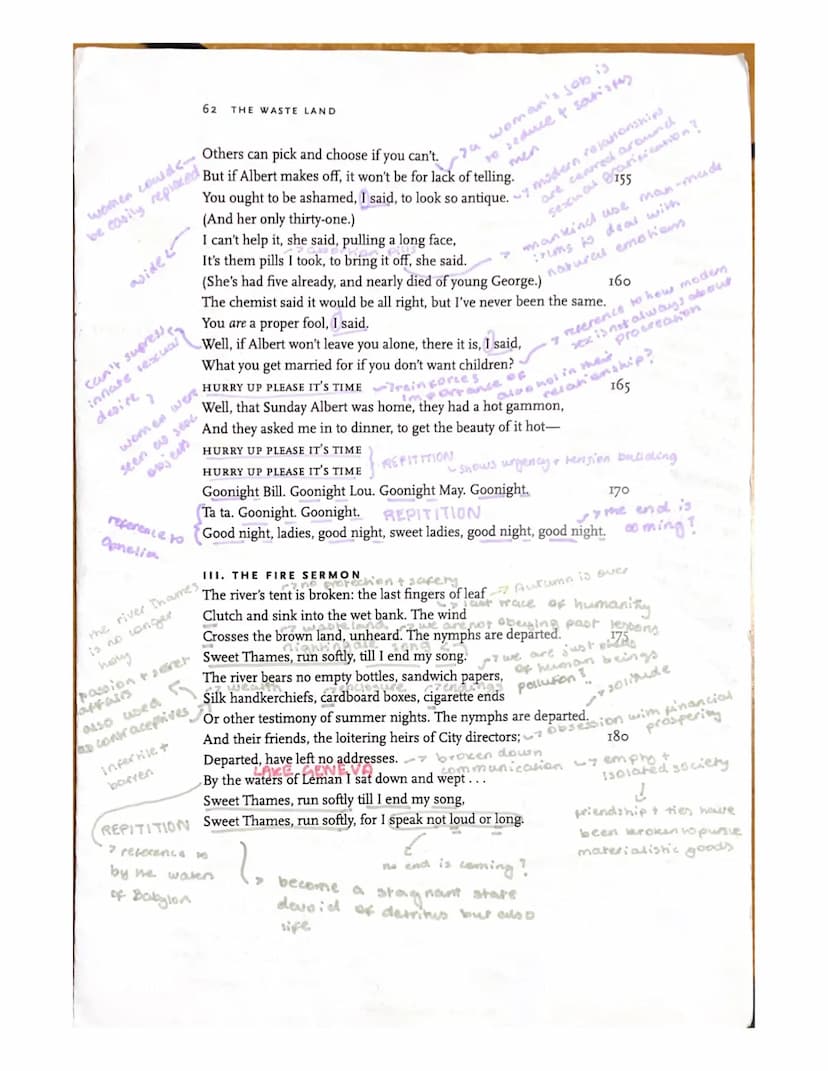 62 THE WASTE LAND
a woman's job is
to seduce + satisfy
men
Others can pick and choose if you can't.
women could
be easily replaced
But if Albert makes off, it won't be for lack of telling.
155
modern relationships
are centred around
sexual gratification?
You ought to be ashamed, I said, to look so antique.
(And her only thirty-one.)
I can't help it, she said, pulling a long face,
mankind use man-made
items to deal with
natural emotions
abortion pills
It's them pills I took, to bring it off, she said.
(She's had five already, and nearly died of young George.)
160
The chemist said it would be all right, but I've never been the same.
You are a proper fool, I said.
can't supress
innate sexual
desire?
Well, if Albert won't leave you alone, there it is, I said,
reference to how modern
sex is not always about
procreation
What you get married for if you don't want children?
HURRY UP PLEASE IT'S TIME
reinforces
importance of
alcohol in their
relationship?
165
women were
seen as sex
objects
Well, that Sunday Albert was home, they had a hot gammon,
And they asked me in to dinner, to get the beauty of it hot—
HURRY UP PLEASE IT'S TIME
HURRY UP PLEASE IT'S TIME
REPITITION
shows urgency + tension building
Goonight Bill. Goonight Lou. Goonight May. Goonight.
170
Ta ta. Goonight. Goonight.
REPITITION
the end is
coming?
reference to
Ophelia
Good night, ladies, good night, sweet ladies, good night, good night.
III. THE FIRE SERMON
no protection + safety
The river's tent is broken: the last fingers of leaf
Autumn is over
the river Thames
is no longer
holy
last trace of humanity
Clutch and sink into the wet bank. The wind
wasteland
we are not obeying past lessons
Crosses the brown land, unheard. The nymphs are departed.
175
nightingale song
Sweet Thames, run softly, till I end my song.
of human beings
The river bears no empty bottles, sandwich papers,
pollution?
passion + secret
affairs
also used
as contraceptives
wealth
enclosure
endings
Silk handkerchiefs, cardboard boxes, cigarette ends
solitude
Or other testimony of summer nights. The nymphs are departed.
And their friends, the loitering heirs of City directors;
180
obsession with financial
prosperity
infertile +
barren
Departed, have left no addresses.
broken down
communication
empty +
isolated society
friendship + ties have
been broken to pursue
materialistic goods
LAKE GENEVA
By the waters of Leman I sat down and wept . . .
Sweet Thames, run softly till I end my song,
Sweet Thames, run softly, for I speak not loud or long.
REPITITION
reference to
by the waters
of Babylon
no end is coming?
become a stagnant state
devoid of detritus but also
life